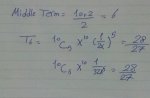 Middle Term = 10+2/2 = 6
T6 = ¹⁰C₅ x¹⁰ (1/2x)⁵ = 28/27
¹⁰C₅ x¹⁰ 1/32x⁵ = 28/27